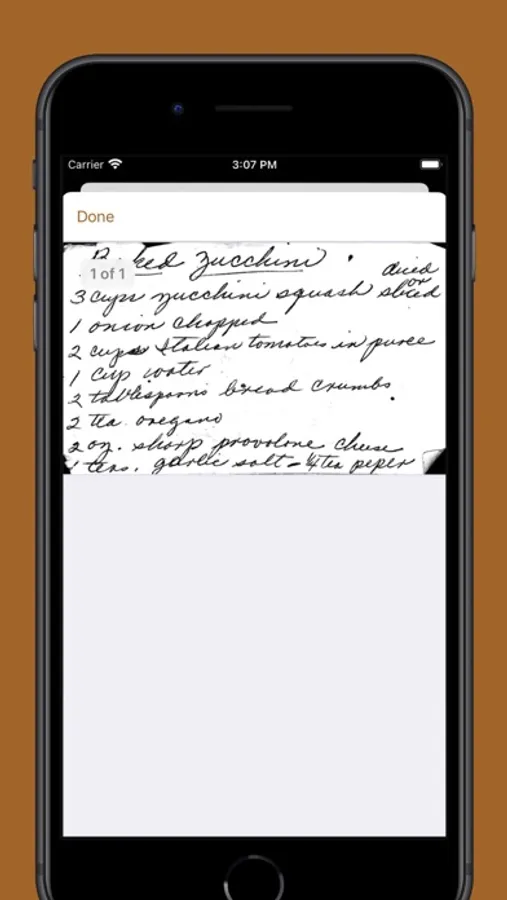 Carrier 3:07 PM
Done
1 of 1
Zucchini
or
3 cups zucchini squash sliced
1 onion chopped
2 cups Italian tomatoes in puree
1 cup water
2 tablespoons bread crumbs
2 tea. oregano
2 oz. sharp provolone cheese
1 teas. garlic salt - 1/4 tea peper